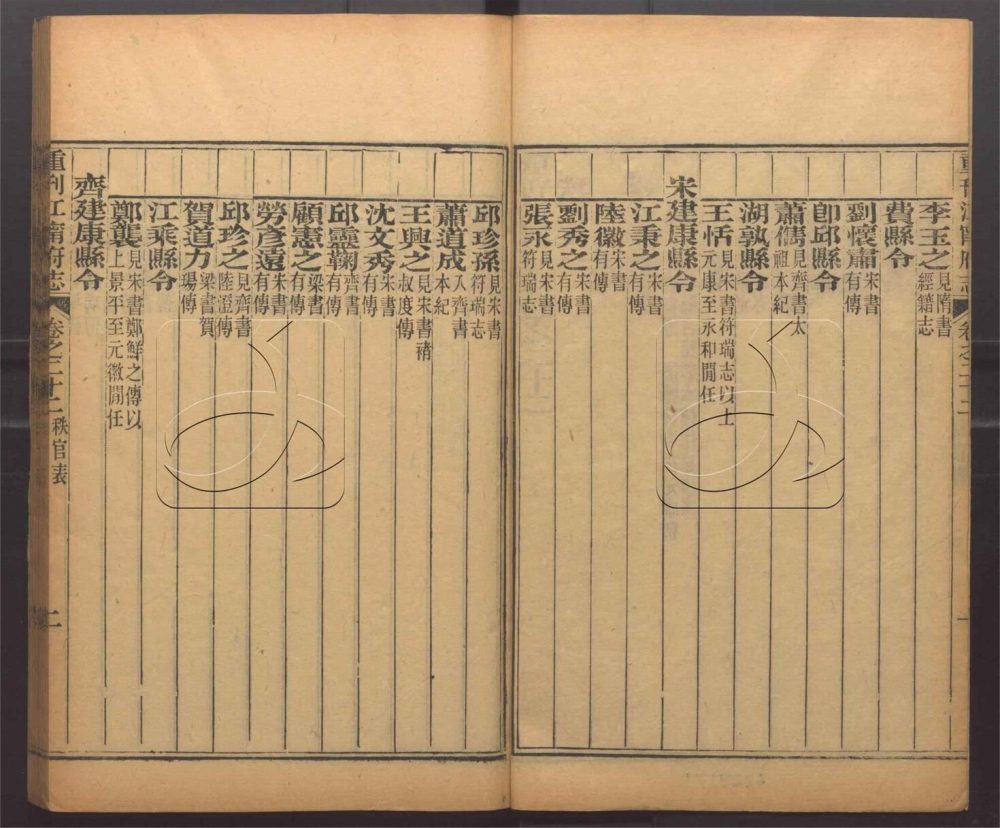 李玉之見隋書經籍志
費縣令
劉懷肅宋書有傳
卽邱縣令
蕭儁見齊書太祖本紀
湖孰縣令
王恬見宋書符瑞志以上元康至永和閒任
宋建康縣令
江秉之宋書有傳
陸徽宋書有傳
劉秀之宋書有傳
張永見宋書符瑞志
邱珍孫見宋書符瑞志
蕭道成入齊書本紀
王興之見宋書褚叔度傳
沈文秀宋書有傳
邱靈鞠齊書有傳
顧憲之梁書有傳
勞彥遠宋書有傳
邱珍之見齊書陸澄傳
賀道力梁書賀瑒傳
江乘縣令
鄭襲見宋書鄭鮮之傳以上景平至元徽閒任
齊建康縣令
重刊江甯府志 卷之二十二 秩官表 二